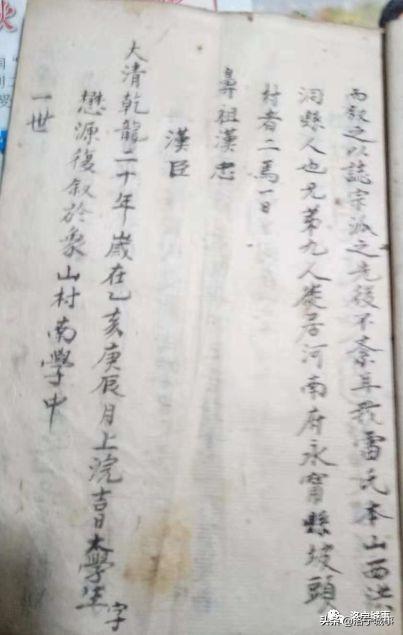 而叙之以誌宗派之先後不紊耳我雷氏本山西洪
洞縣人也兄弟九人徙居河南府永甯縣坡頭
村者二焉一曰
鼻祖漢忠
漢臣
大清乾龍二十年歲在乙亥庚辰月上浣吉日太學生字
懋源復叙於象山村南學中
一世
洛宁城事